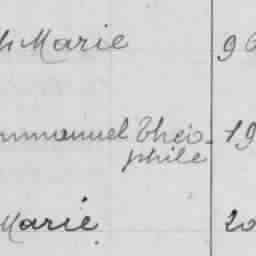 h Marie 96
mmanuel Théo- 19
phile
Marie 20